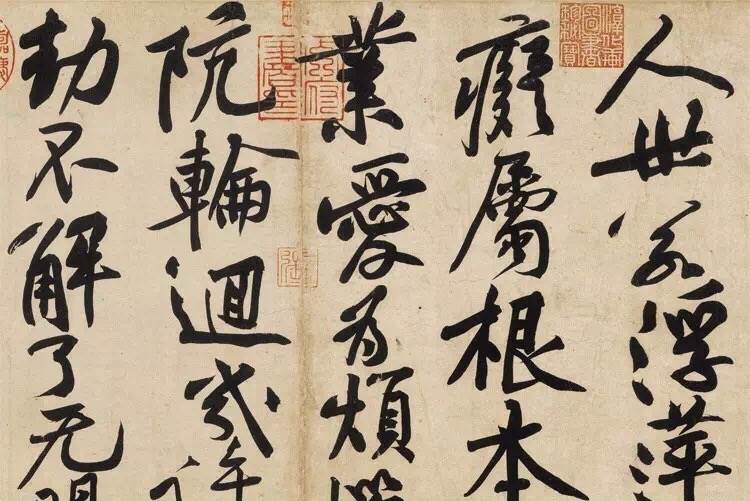 人世若浮萍
癡屬根本
業愛為煩惱
阬輪迴幾許
劫不解了无明